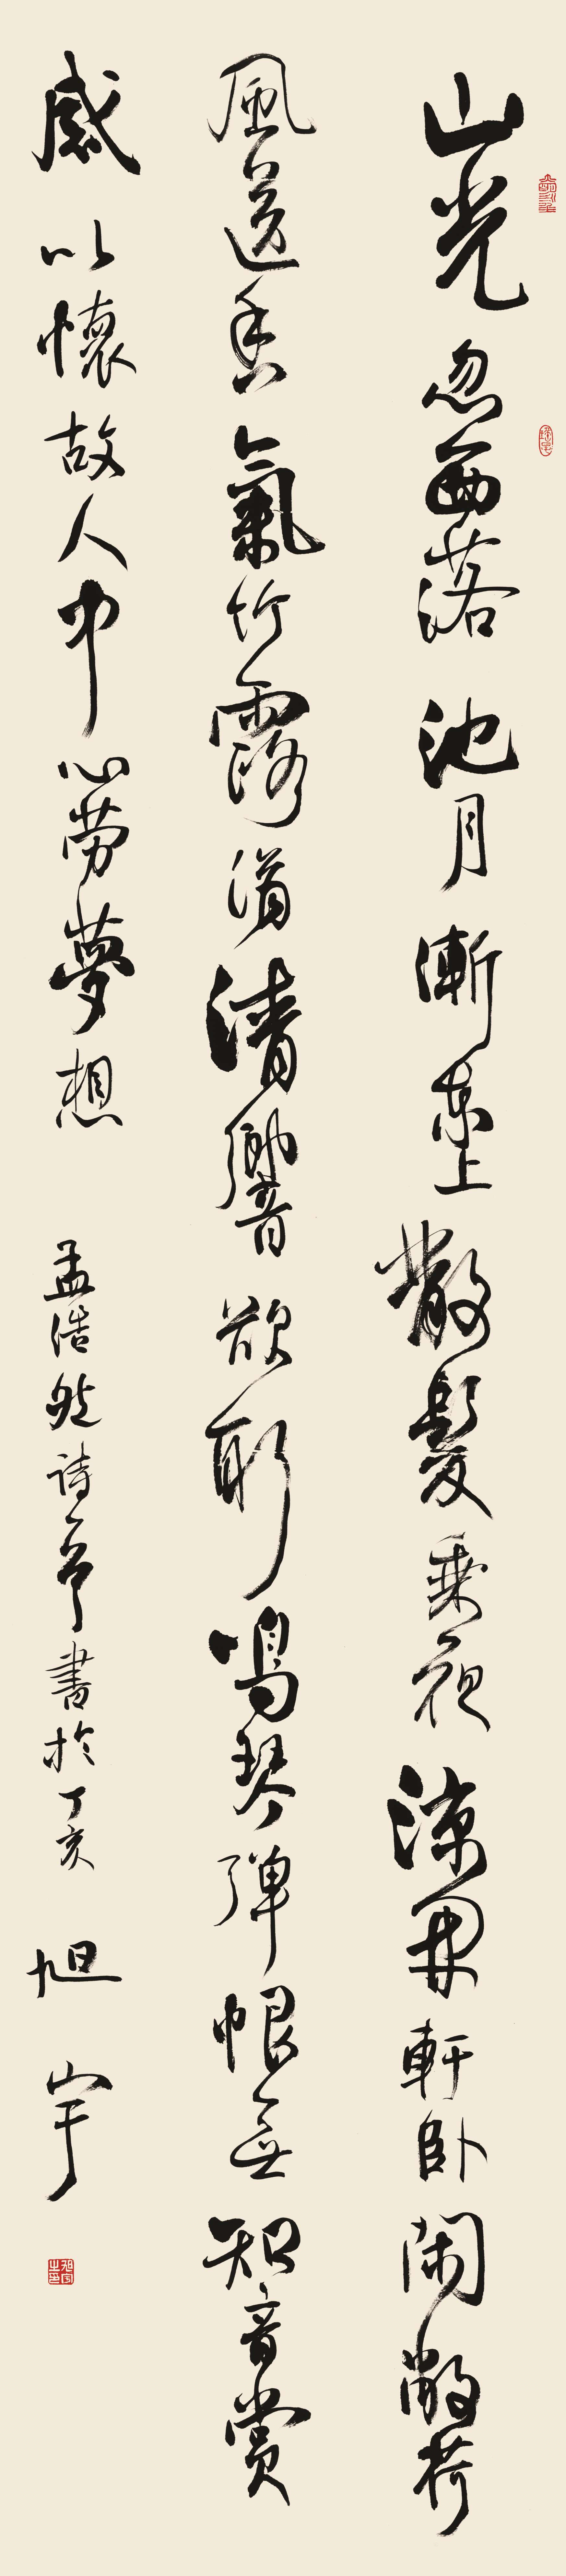 山光忽西落池月漸東上散髮乘夜涼開軒卧閑敞荷
風送香氣竹露滴清響欲取鳴琴彈恨無知音賞
感此懷故人中心劳夢想 孟浩然詩一首書於丁亥 旭宇
旭宇之印